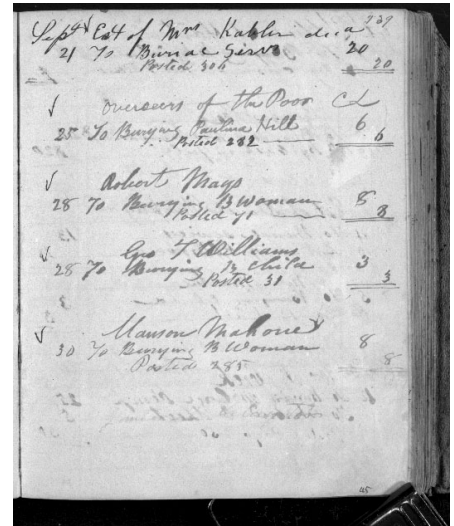 239
Sept Est of Mrs Kabler decd
21 To Burial Servs 20
Posted 306 20
Overseers of the Poor
25 To Burying Paulina Hill 6
Posted 282 6
Robert Mays
28 To Burying B Woman 8
Posted 71 8
Geo T Williams
28 To Burying B Child 3
Posted 31 3
Manson Mahone
30 To Burying B Woman 8
Posted 285 8